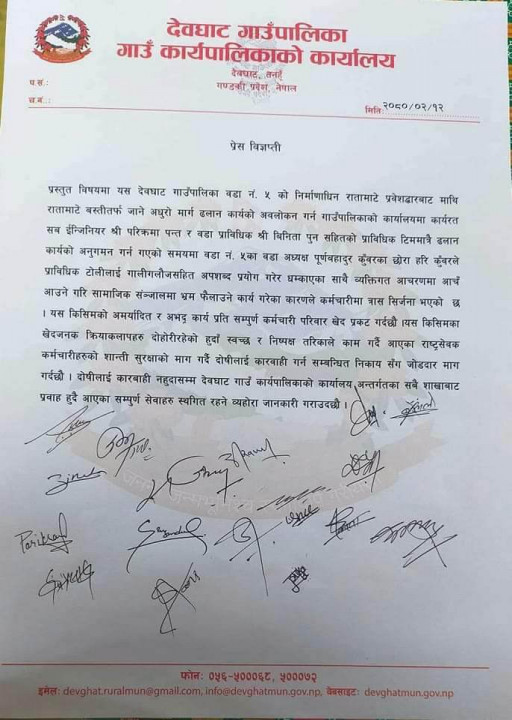 देवघाट गाउँपालिका
गाउँ कार्यपालिकाको कार्यालय
देवघाट, तनहुँ
गण्डकी प्रदेश, नेपाल
प.सं.:
च.नं.:
मिति: २०८०/०२/१२
प्रेस विज्ञप्ती
प्रस्तुत विषयमा यस देवघाट गाउँपालिका वडा नं. ५ को निर्माणाधिन रातामाटे प्रवेशद्धारबाट माथि
रातामाटे बस्तीतर्फ जाने अधुरो मार्ग ढलान कार्यको अवलोकन गर्न गाउँपालिकाको कार्यालयमा कार्यरत
सब ईन्जिनियर श्री परिक्रमा पन्त र वडा प्राविधिक श्री बिनिता पुन सहितको प्राविधिक टिममात्रै ढलान
कार्यको अनुगमन गर्न गएको समयमा वडा नं. ५का वडा अध्यक्ष पूर्णबहादुर कुँवरका छोरा हरि कुँवरले
प्राविधिक टोलीलाई गालीगलौजसहित अपशब्द प्रयोग गरेर धम्काएका साथै व्यक्तिगत आचरणमा आचँ
आउने गरि सामाजिक संञ्जालमा भ्रम फैलाउने कार्य गरेका कारणले कर्मचारीमा त्रास सिर्जना भएको छ
। यस किसिमको अमर्यादित र अभद्र कार्य प्रति सम्पुर्ण कर्मचारी परिवार खेद प्रकट गर्दछौ ।यस किसिमका
खेदजनक क्रियाकलापहरु दोहोरीरहेको हुदाँ स्वच्छ र निष्पक्ष तरिकाले काम गर्दै आएका राष्ट्रसेवक
कर्मचारीहरुको शान्ती सुरक्षाको माग गर्दै दोषीलाई कारबाही गर्न सम्बन्धित निकाय सँग जोडदार माग
गर्दछौ । दोषीलाई कारबाही नहुदासम्म देवघाट गाउँ कार्यपालिकाको कार्यालय अन्तर्गतका सबै शाखाबाट
प्रवाह हुदै आएका सम्पुर्ण सेवाहरु स्थगित रहने व्यहोरा जानकारी गराउदछौ ।
फोनः ०५६-५०००६८, ५०००७२
इमेलः devghat.ruralmun@gmail.com, info@devghatmun.gov.np, वेबसाइटः devghatmun.gov.np